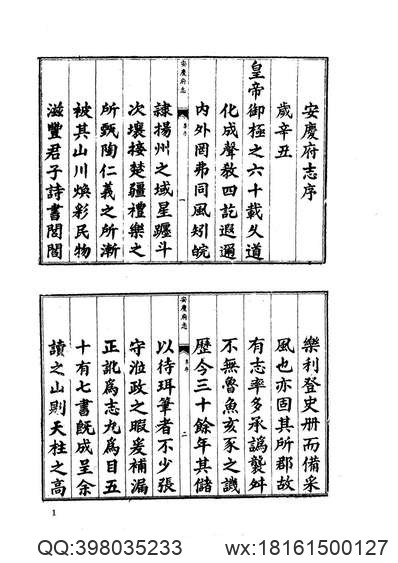 安慶府志序
歲辛丑
皇帝御極之六十載久道
化成聲教四訖遐邇
內外罔弗同風矧皖
安慶府志
一
隸揚州之域星躔斗
次壤接楚疆禮樂之
所甄陶仁義之所漸
被其山川煥彩民物
滋豐君子詩書閭閻
樂利登史册而備采
風也亦固其所郡故
有志率多承譌襲舛
不無魯魚亥豕之譏
歷今三十餘年其儲
安慶府志
二
以待珥筆者不少張
守涖政之暇爰補漏
正訛為志九為目五
十有七書既成呈余
讀之山則天柱之高
1
QQ:398035233 wx:18161500127